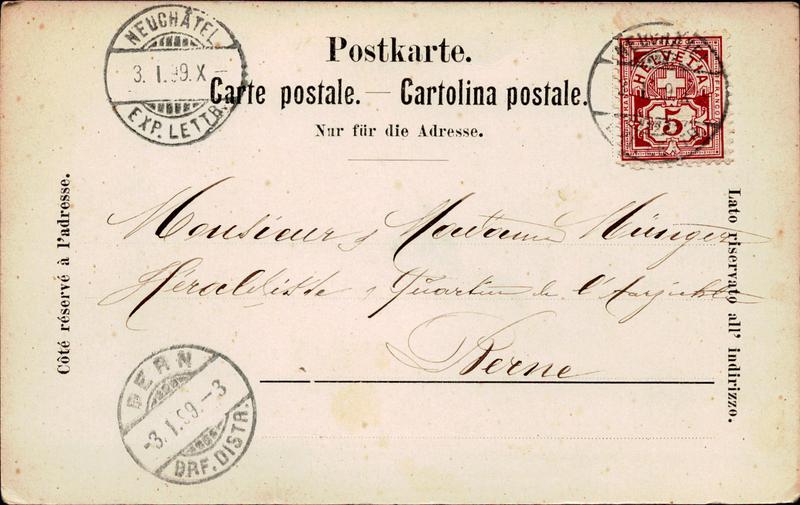 NEUCHÂTEL
3. I. 99. X –
EXP. LETTR.
Postkarte.
Carte postale. — Cartolina postale.
Nur für die Adresse.
HELVETIA
5
Côté réservé à l'adresse.
Lato riservato all' indirizzo.
Monsieur & Madame Münger
Héraldiste, Quartier de l'
Berne
BERN
-3. I. 99. – 3
BRF. DISTR.